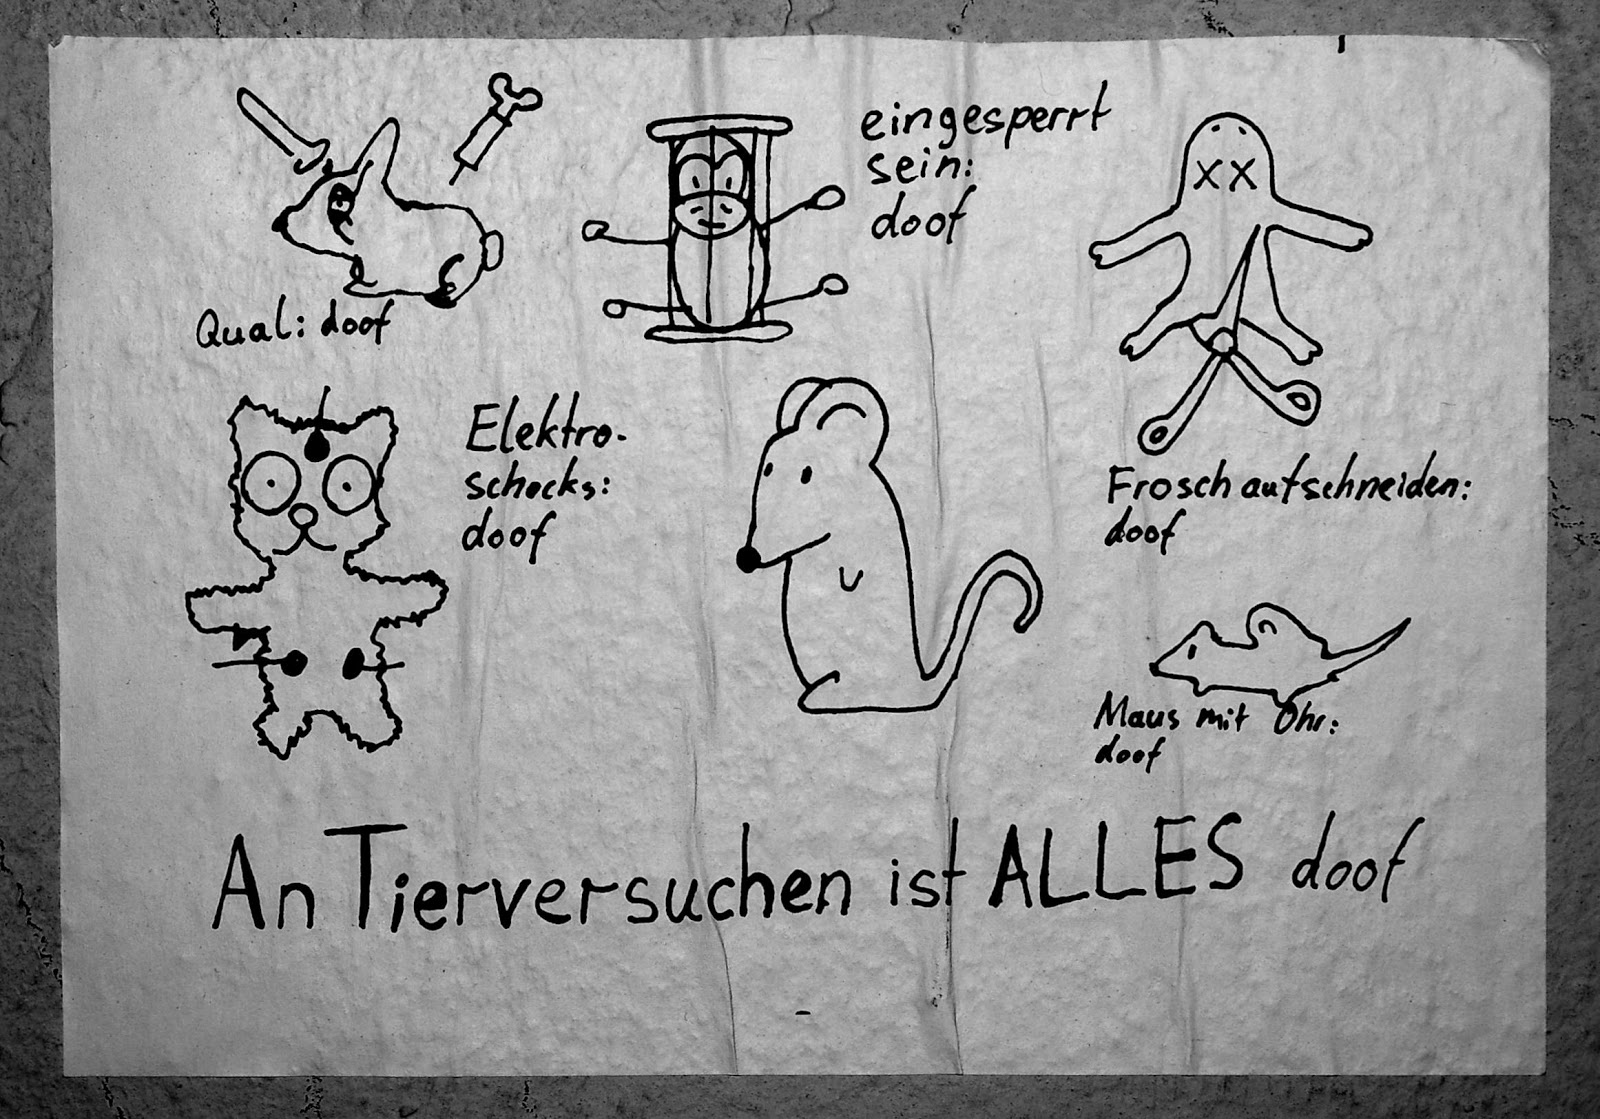 eingesperrt
sein:
doof
Qual: doof
Elektro-
schocks:
doof
Frosch aufschneiden:
doof
Maus mit Ohr:
doof
An Tierversuchen ist ALLES doof